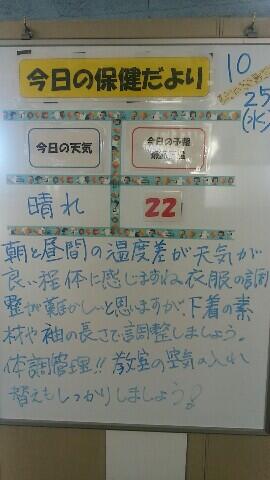 今日の保健だより
10
25
(水)
今日の天気
今日の予想
最高気温
晴れ
22
朝と昼間の温度差が天気が
良い程体に感じますね。衣服の調
整が難かしいと思いますが、下着の素
材や袖の長さで調整しましょう。
体調管理!!教室の空気の入れ
替えもしっかりしましょう!